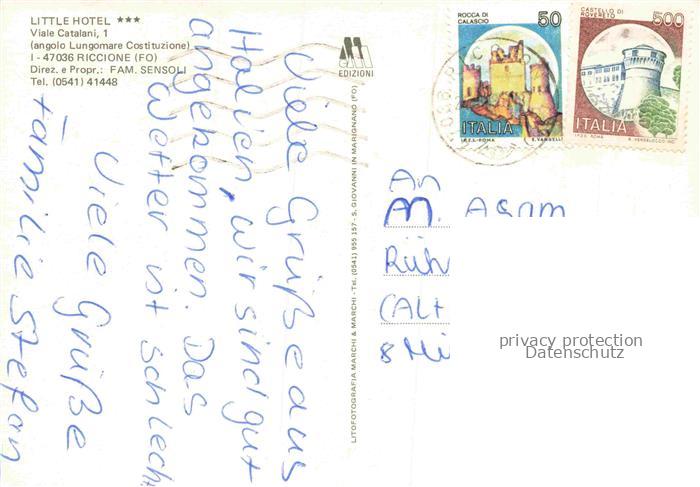 LITTLE HOTEL ***
Viale Catalani, 1
(angolo Lungomare Costituzione)
I - 47036 RICCIONE (FO)
Direz. e Propr.: FAM. SENSOLI
Tel. (0541) 41448
Viele Grüße aus
Italien, wir sind gut
angekommen. Das
Wetter ist schlecht
Viele Grüße
Familie Stefan
EDIZIONI
LITOFOTOGRAFIA MARCHI & MARCHI - Tel. (0541) 955 157 - S. GIOVANNI IN MARIGNANO (FO)
ROCCA DI
CALASCIO
50
ITALIA
I.P.Z.S. ROMA
E. VANGELLI
CASTELLO DI
ROVERETO
500
ITALIA
I.P.Z.S. ROMA
An
M. Asam
Rüh
(Alt
8 Mü
privacy protection
Datenschutz